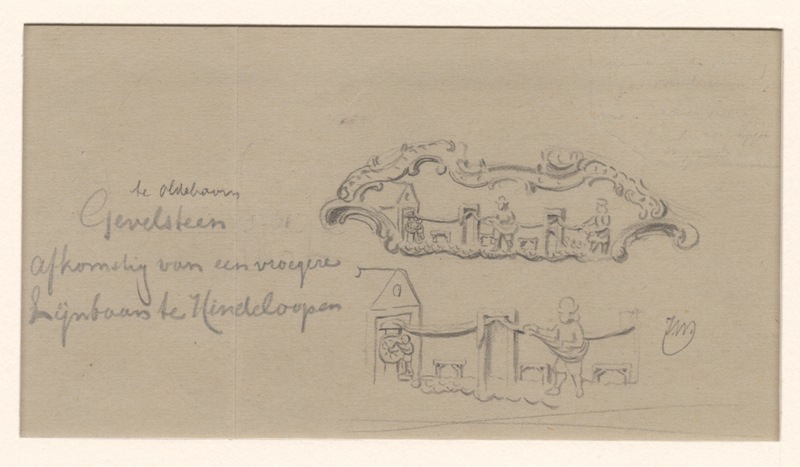 te Oldeboorn
Gevelsteen
afkomstig van een vroegere
Lijnbaan te Hindeloopen